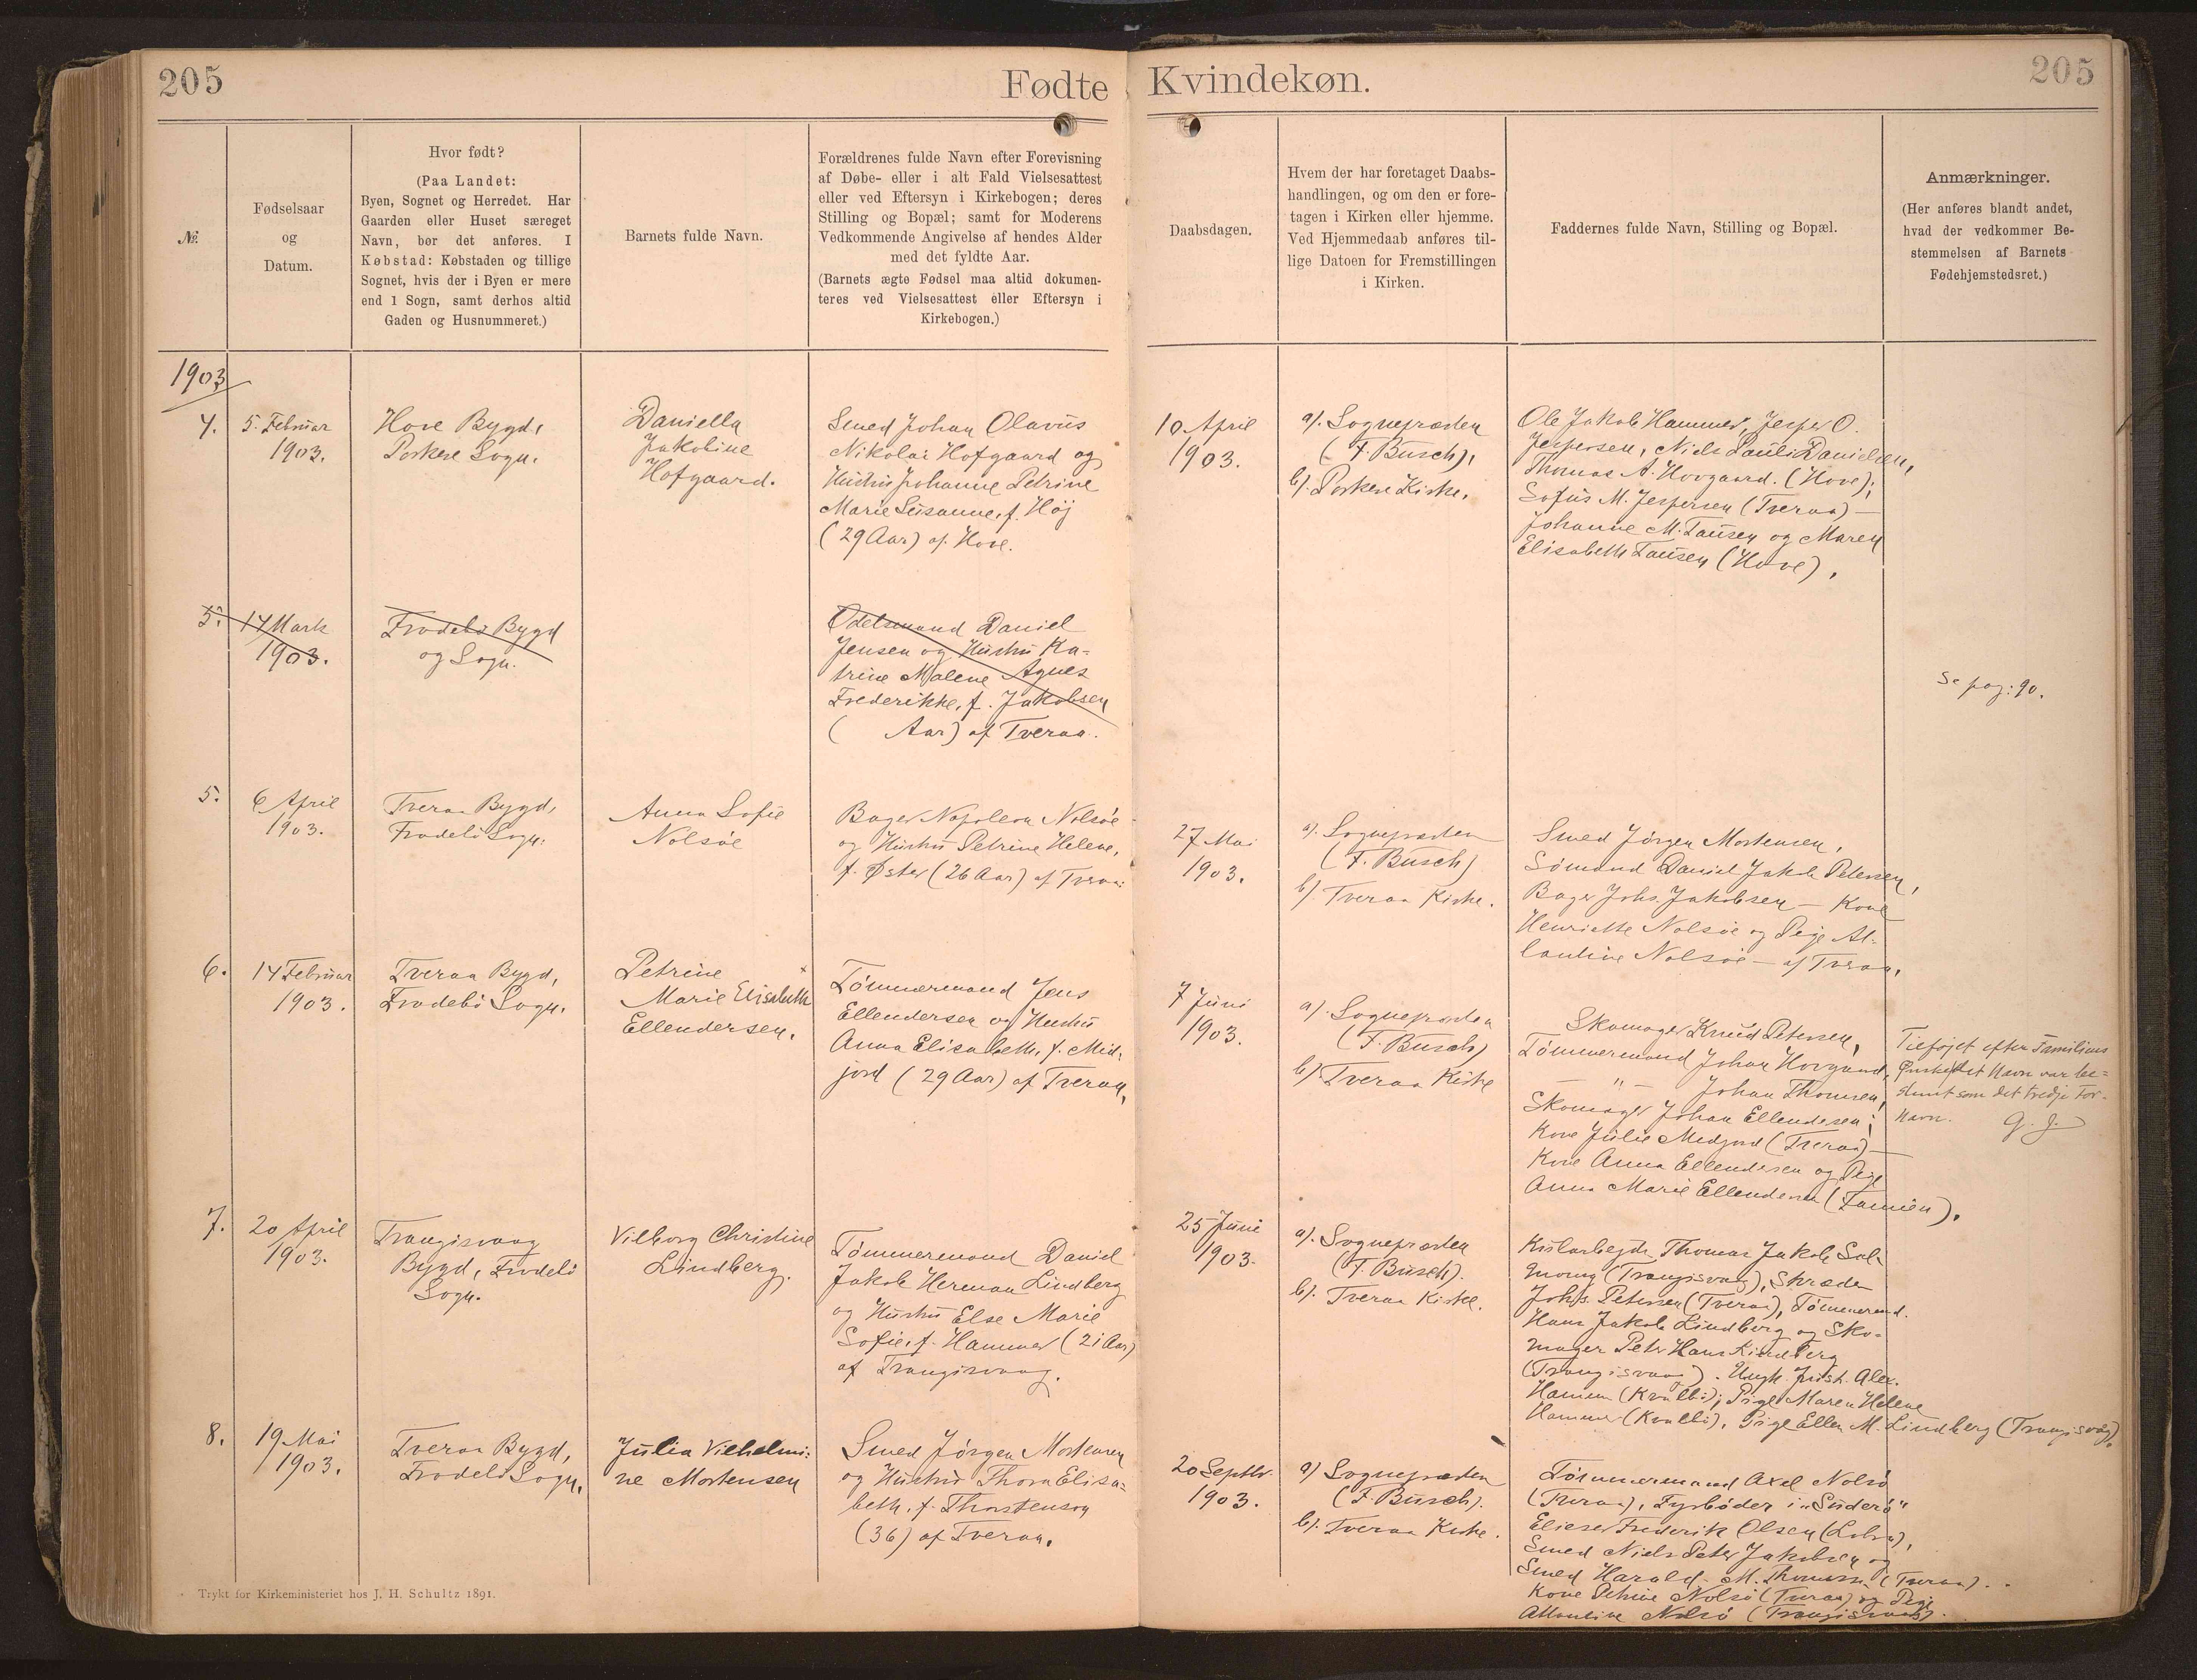 205
Fødte Kvindekøn.
205
№.
Fødselsaar
og
Datum.
Hvor født?
(Paa Landet:
Byen, Sognet og Herredet. Har
Gaarden eller Huset særeget
Navn, bør det anføres. I
Købstad: Købstaden og tillige
Sognet, hvis der i Byen er mere
end 1 Sogn, samt derhos altid
Gaden og Husnummeret.)
Barnets fulde Navn.
Forældrenes fulde Navn efter Forevisning
af Døbe- eller i alt Fald Vielsesattest
eller ved Eftersyn i Kirkebogen; deres
Stilling og Bopæl; samt for Moderens
Vedkommende Angivelse af hendes Alder
med det fyldte Aar.
(Barnets ægte Fødsel maa altid dokumen-
teres ved Vielsesattest eller Eftersyn i
Kirkebogen.)
Daabsdagen.
Hvem der har foretaget Daabs-
handlingen, og om den er fore-
tagen i Kirken eller hjemme.
Ved Hjemmedaab anføres til-
lige Datoen for Fremstillingen
i Kirken.
Faddernes fulde Navn, Stilling og Bopæl.
Anmærkninger.
(Her anføres blandt andet,
hvad der vedkommer Be-
stemmelsen af Barnets
Fødehjemstedsret.)
1903
4.
5. Februar
1903.
Hove Bygd,
Porkere Sogn.
Daniella
Jakobine
Hofgaard.
Smed Johan Olavus
Nikolai Hofgaard og
Hustru Johanne Petrine
Marie Susanne, f. Høj
(29 Aar) af Hove.
10 April
1903.
a). Sognepræsten
(F. Busch),
b). Porkere Kirke.
Ole Jakob Hammer, Jesper O.
Jespersen, Niels Pauli Danielsen,
Thomas A. Hovgaard. (Hove);
Sofus M. Jespersen (Tveraa) —
Johanne M. Tausen og Maren
Elisabeth Tausen (Hove).
5.
14 Marts
1903.
Frodebø Bygd
og Sogn.
Odelsmand Daniel
Jensen og Hustru Ka-
trine Malene Agnes
Frederikke, f. Jakobsen
( Aar) af Tveraa.
Se pag: 90.
5.
6 April
1903.
Tveraa Bygd,
Frodebø Sogn.
Anna Sofie
Nolsøe
Bager Napoleon Nolsøe
og Hustru Petrine Helene,
f. Øster (26 Aar) af Tveraa.
27 Mai
1903.
a). Sognepræsten
(F. Busch)
b). Tveraa Kirke.
Smed Jørgen Mortensen,
Sømand Daniel Jakob Petersen,
Bager Johs. Jakobsen — Kone
Henriette Nolsøe og Pige At-
lantine Nolsøe — af Tveraa.
6.
14 Februar
1903.
Tveraa Bygd,
Frodebø Sogn.
Petrine
Marie Elisabeth
Ellendersen.
Tømmermand Jens
Ellendersen og Hustru
Anna Elisabeth, f. Mid-
jord (29 Aar) af Tveraa,
7 Juni
1903.
a). Sognepræsten
(F. Busch)
b). Tveraa Kirke
Skomager Knud Petersen,
Tømmermand Johan Hovgaard,
— " — Johan Thomsen,
Skomager Johan Ellendersen;
Kone Julie Midjord (Tveraa) —
Kone Anna Ellendersen og Pige
Anna Marie Ellendersen (Famien).
Tilføjet efter Familiens
Ønske. Det Navn var be-
stemt som det tredje For-
navn. G. J.
7.
20 April
1903.
Trangisvaag
Bygd, Frodebø
Sogn.
Vilborg Christine
Lindberg.
Tømmermand Daniel
Jakob Herman Lindberg
og Hustru Else Marie
Sofie, f. Hammer (21 Aar)
af Trangisvaag.
25 Juni
1903.
a). Sognepræsten
(F. Busch).
b). Tveraa Kirke.
Kularbejder Thomas Jakob Sal-
(Trangisvaag), Skræder
Johs. Petersen (Tveraa), Tømmermd.
Hans Jakob Lindberg og Sko-
mager Peter Hans Lindberg
(Trangisvaag). Ungk. Alex.
Hammer (Kvalbø); Pige Maren Helene
Hammer (Kvalbø), Pige Ellen M. Lindberg (Trangisvåg).
8.
19 Mai
1903.
Tveraa Bygd,
Frodebø Sogn.
Julia Vilhelmi-
ne Mortensen
Smed Jørgen Mortensen
og Hustru Thora Elisa-
beth, f. Thorstenson
(36) af Tveraa.
20 Septbr.
1903.
a) Sognepræsten
(F. Busch).
b). Tveraa Kirke.
Tømmermand Axel Nolsø
(Tveraa), Fyrbøder i "Suderø"
Elieser Frederik Olsen,
Smed Niels Peter Jakobsen og
Smed Harald M. Thomassen (Tveraa).
Kone Petrine Nolsø (Tveraa) og Pige
Atlantine Nolsø (Trangisvaag).
Trykt for Kirkeministeriet hos J. H. Schultz 1891.